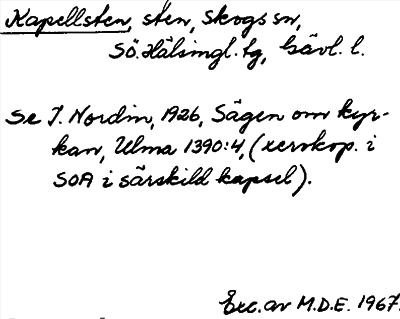 Kapellsten, sten, Skogs sn,
Sö. Hälsingl. tg, Gävl. l.
Se J. Nordin, 1926, Sägen om kyr-
kan, Ulma 1390:4, (xerokop. i
SOA i särskild kapsel).
Exc. av M.D.E. 1967.